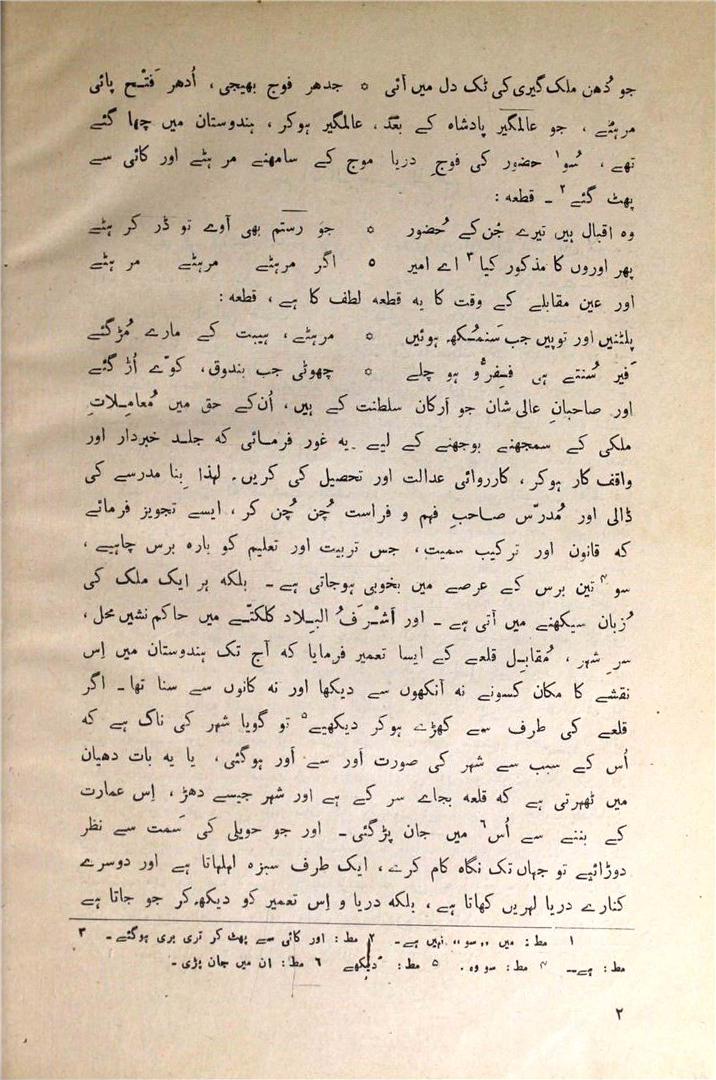 جو دُھن ملک گیری کی ٹک دل میں آئی * جدھر فوج بھیجی، اُدھر فَتْح پائی
مرہٹے، جو عالمگیر پادشاہ کے بَعْد، عالمگیر ہوکر، ہندوستان میں چھا گئے
تھے، سُو۱ حضور کی فوجِ دریا موج کے سامھنے مر ہٹے اور کائی سے
پھٹ گئے۲ ۔ قطعہ:
وہ اقبال ہیں تیرے جُن کے حُضور * جو رستم بھی آوے تو ڈر کر ہٹے
پھر اوروں کا مذکور کیا۳ اے امیر ٥ اگر مرہٹے مرہٹے مر ہٹے
اور عین مقابلے کے وقت کا یہ قطعہ لطف کا ہے، قطعہ:
پلٹنیں اور توپیں جب سَنمُکھ ہوئیں * مرہٹے، ہیبت کے مارے مُڑ گئے
فَیر سُنتے ہی فِفِرُّو ہو چلے * چھوٹی جب بندوق، کوّے اُڑ گئے
اور صاحبانِ عالی شان جو اَرکان سلطنت کے ہیں، اُن کے حق میں مُعامِلاتِ
ملکی کے سمجھنے بوجھنے کے لیے یہ غور فرمائی کہ جلد خبردار اور
واقف کار ہوکر، کارروائی عدالت اور تحصیل کی کریں۔ لہذا بِنا مدرسے کی
ڈالی اور مُدرّس صاحبِ فہم و فراست چُن چُن کر، ایسے تجویز فرمائے
کہ قانون اور ترکیب سمیت، جس تربیت اور تعلیم کو بارہ برس چاہیے،
سو۴ تین برس کے عرصے میں بخوبی ہوجاتی ہے۔ بلکہ ہر ایک ملک کی
زُبان سیکھنے میں آتی ہے۔ اور اَشْرَفُ البِلاد کلکتّے میں حاکم نشیں محل،
سرِ شہر، مُقابِل قلعے کے ایسا تعمیر فرمایا کہ آج تک ہندوستان میں اِس
نقشے کا مکان کسونے نہ آنکھوں سے دیکھا اور نہ کانوں سے سنا تھا۔ اگر
قلعے کی طرف سے کھڑے ہوکر دیکھیے۵ تو گویا شہر کی ناک ہے کہ
اُس کے سبب سے شہر کی صورت اَور سے اَور ہوگئی، یا یہ بات دھیان
میں ٹھہرتی ہے کہ قلعہ بجاے سر کے ہے اور شہر جیسے دھڑ، اِس عمارت
کے بننے سے اُس۶ میں جان پڑگئی۔ اور جو حویلی کی سَمت سے نظر
دوڑائیے تو جہاں تک نگاہ کام کرے، ایک طرف سبزہ لہلہاتا ہے اور دوسرے
کنارے دریا لہریں کھاتا ہے، بلکہ دریا و اِس تعمیر کو دیکھ کر جو جاتا ہے
۱ مط: میں ،،سو،، نہیں ہے۔ ۲ مط: اور کائی سے پھٹ کر تری بری ہوگئے۔ ۳
مط: ہے۔ ۴ مط: سو وہ۔ ۵ مط: دیکھے ۶ مط: ان میں جان پڑی۔
۲